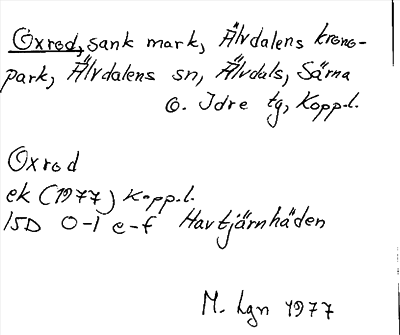 Oxrod, sank mark, Älvdalens krono-
park, Älvdalens sn, Älvdals, Särna
o. Idre tg, Kopp.l.
Oxrod
ek (1977) Kopp.l.
15D 0-1 e-f Havtjärnhäden
M. Lgn 1977